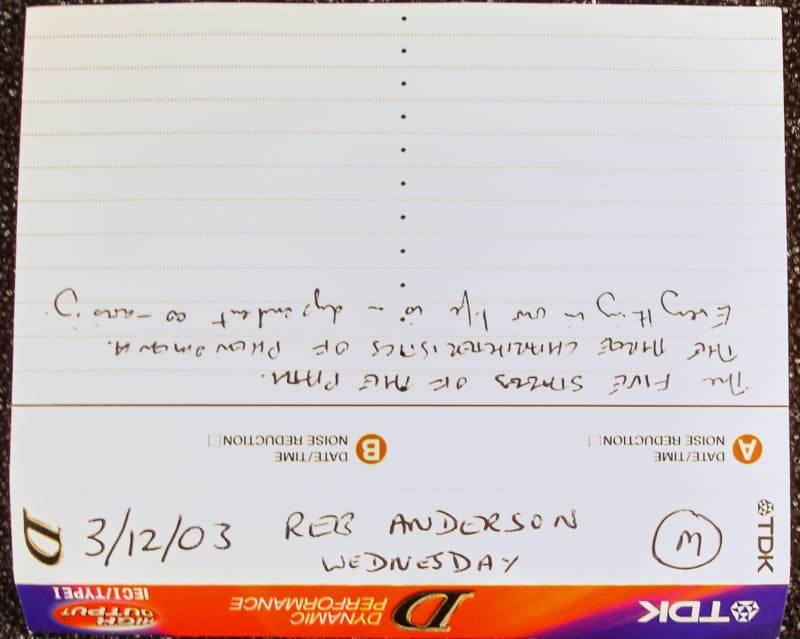 The FIVE STAGES OF THE PATH.
THE THREE CHARACTERISTICS OF PHENOMENA.
Everything in our life is a dependent co-arising
A DATE/TIME
NOISE REDUCTION
B DATE/TIME
NOISE REDUCTION
TDK
M
REB ANDERSON
WEDNESDAY
3/12/03
D
TDK
D DYNAMIC
PERFORMANCE
HIGH
OUTPUT
IECI/TYPEI